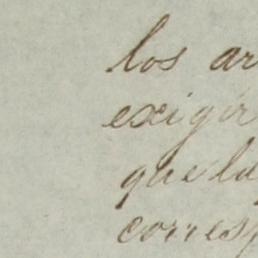 los ar
exigir
que la
corresp